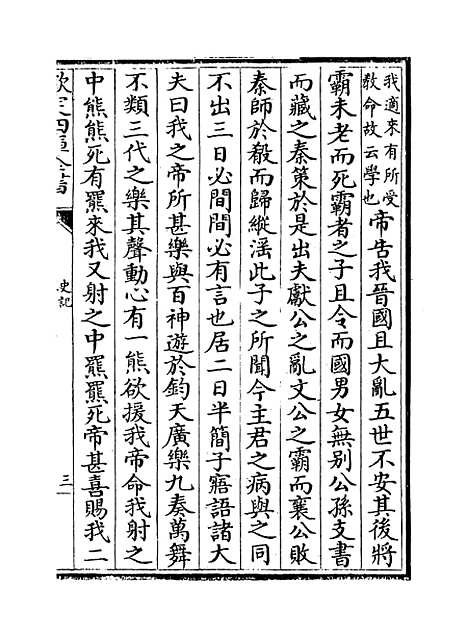 我適來有所受
教命故云學也
帝告我晉國且大亂五世不安其後將
霸未老而死霸者之子且令而國男女無别公孫支書
而藏之秦策於是出夫獻公之亂文公之霸而襄公敗
秦師於殽而歸縱淫此子之所聞今主君之病與之同
不出三日必間間必有言也居二日半簡子寤語諸大
夫曰我之帝所甚樂與百神遊於鈞天廣樂九奏萬舞
不類三代之樂其聲動心有一熊欲援我帝命我射之
中熊熊死有羆來我又射之中羆羆死帝甚喜賜我二
欽定四庫全書
史記
三